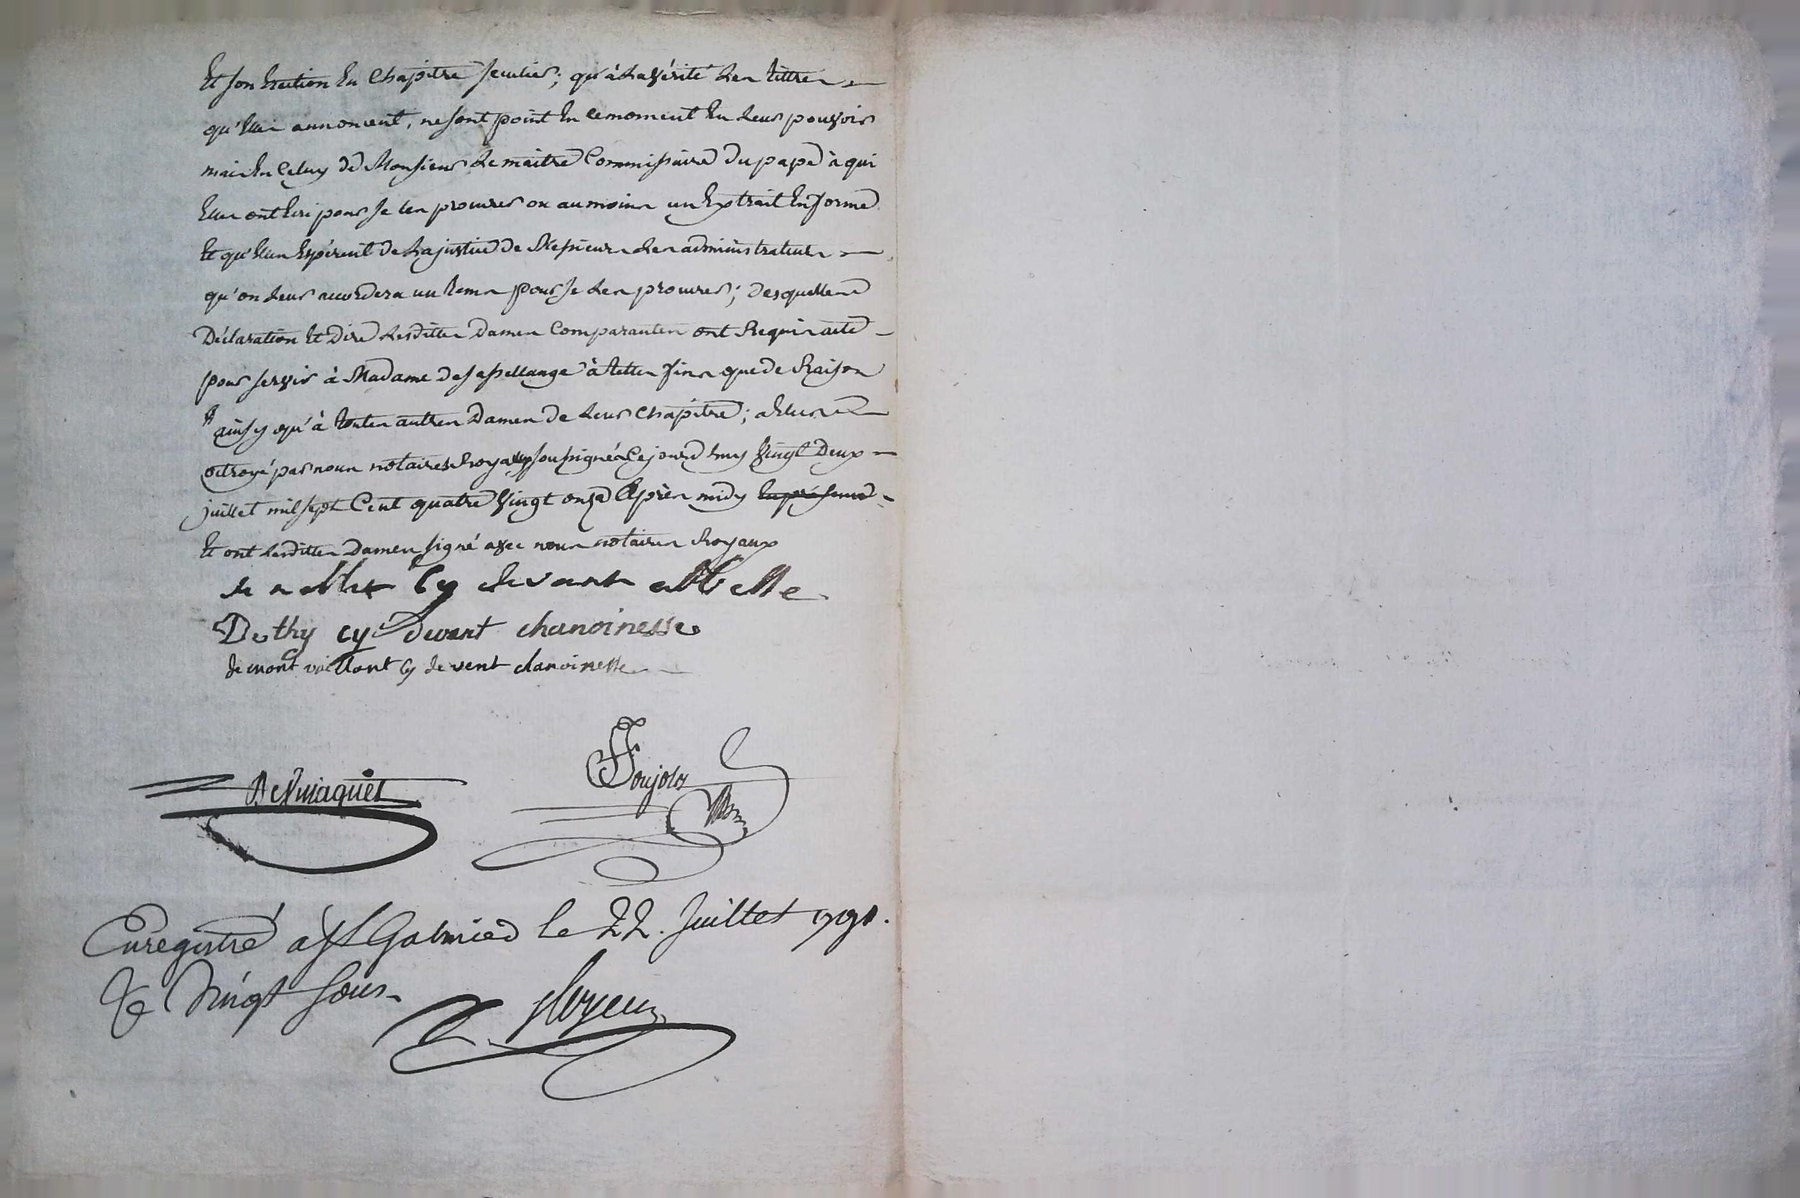 Et son Erection En Chapitre seculier; qu'à la vérité les tittres
qu'elles annoncent, ne sont point En ce moment En leur pouvoir
mais En Celuy de Monsieur Lemaitre Commissaire du pape à qui
Elles ont Ecri pour se les procurer ou au moins un Extrait En forme
Et qu'elles Espèrent de la justice de Messieurs les administrateurs
qu'on leur accordera un tems pour se les procurer; desquelles
Déclaration Et Dire lesdittes Dames Comparantes ont Requis acte
pour servir à Madame de sapellange à telles fins que de Raison
ainsy qu'à toutes autres Dames de leur Chapitre; a Elles
octroyé par nous notaires Royaux soussignés Cejourd'huy Vingt Deux
juillet mil sept Cent quatre Vingt onze Après midy
Et ont lesdittes Dames signé avec nous notaires Royaux
cy devant abbesse
De thy cy devant chanoinesse
de mont vaillant cy devent chanoinesse

Enregistré a St Galmier le 22. Juillet 1791.
Vingt sous